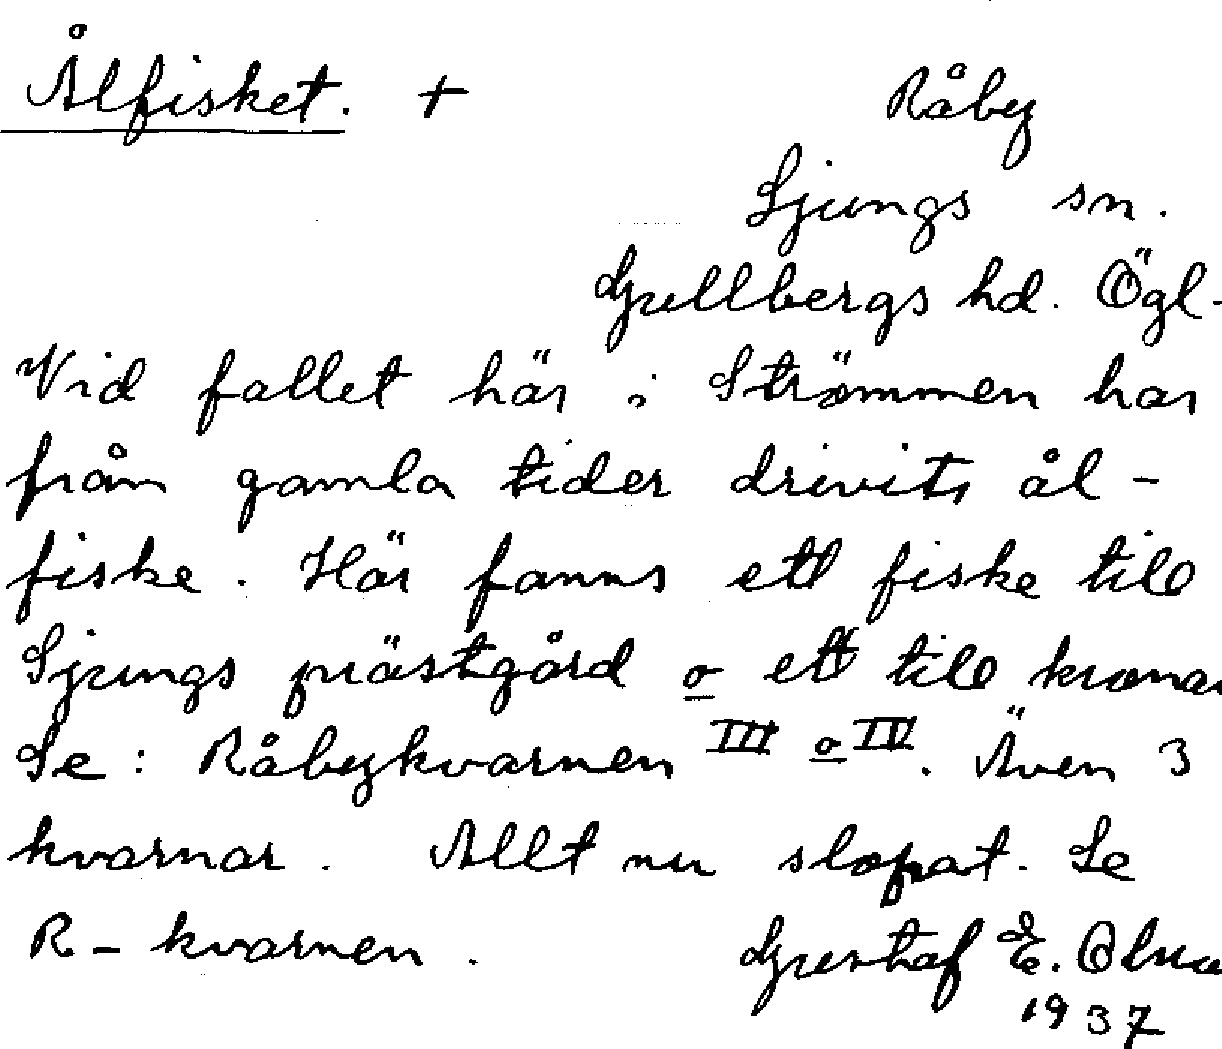 Ålfisket. + Råby
Ljungs sn.
Gullbergs hd. Ögl.
Vid fallet här i Strömmen har
från gamla tider drivits ål-
fiske. Här fanns ett fiske till
Ljungs prästgård o ett till kronan
Se: Råbykvarnen III o IV. Även 3
kvarnar. Allt nu slopat. Se
R-kvarnen. Gustaf E.
1937